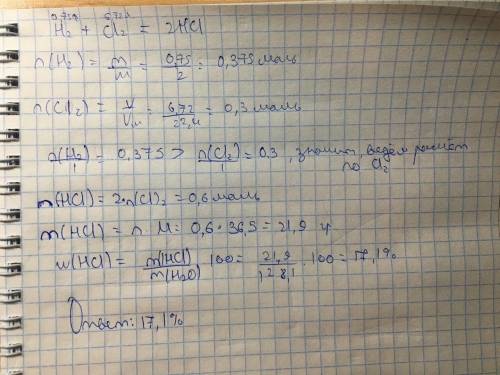 0,75г 6,72л
H₂ + Cl₂ = 2HCl
n(H₂) = m/M = 0,75/2 = 0,375 моль
n(Cl₂) = V/Vm = 6,72/22,4 = 0,3 моль
n(H₂)/1 = 0,375 > n(Cl₂)/1 = 0,3, значит, ведём расчёт
по Cl₂
n(HCl) = 2·n(Cl)₂ = 0,6 моль
m(HCl) = n M = 0,6 · 36,5 = 21,9 г
w(HCl) = m(HCl)/m(H₂O) · 100 = 21,9/128,1 · 100 = 17,1%
Ответ: 17,1%